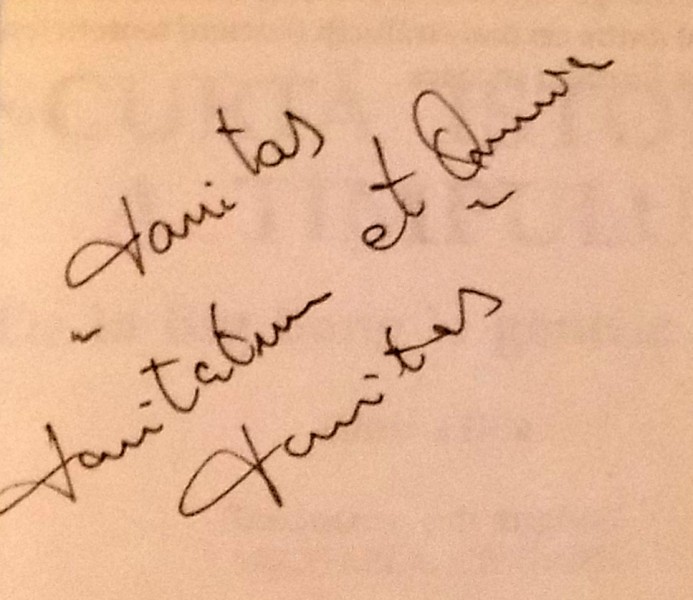 Vanitas
Vanitatum et Omnia
Vanitas